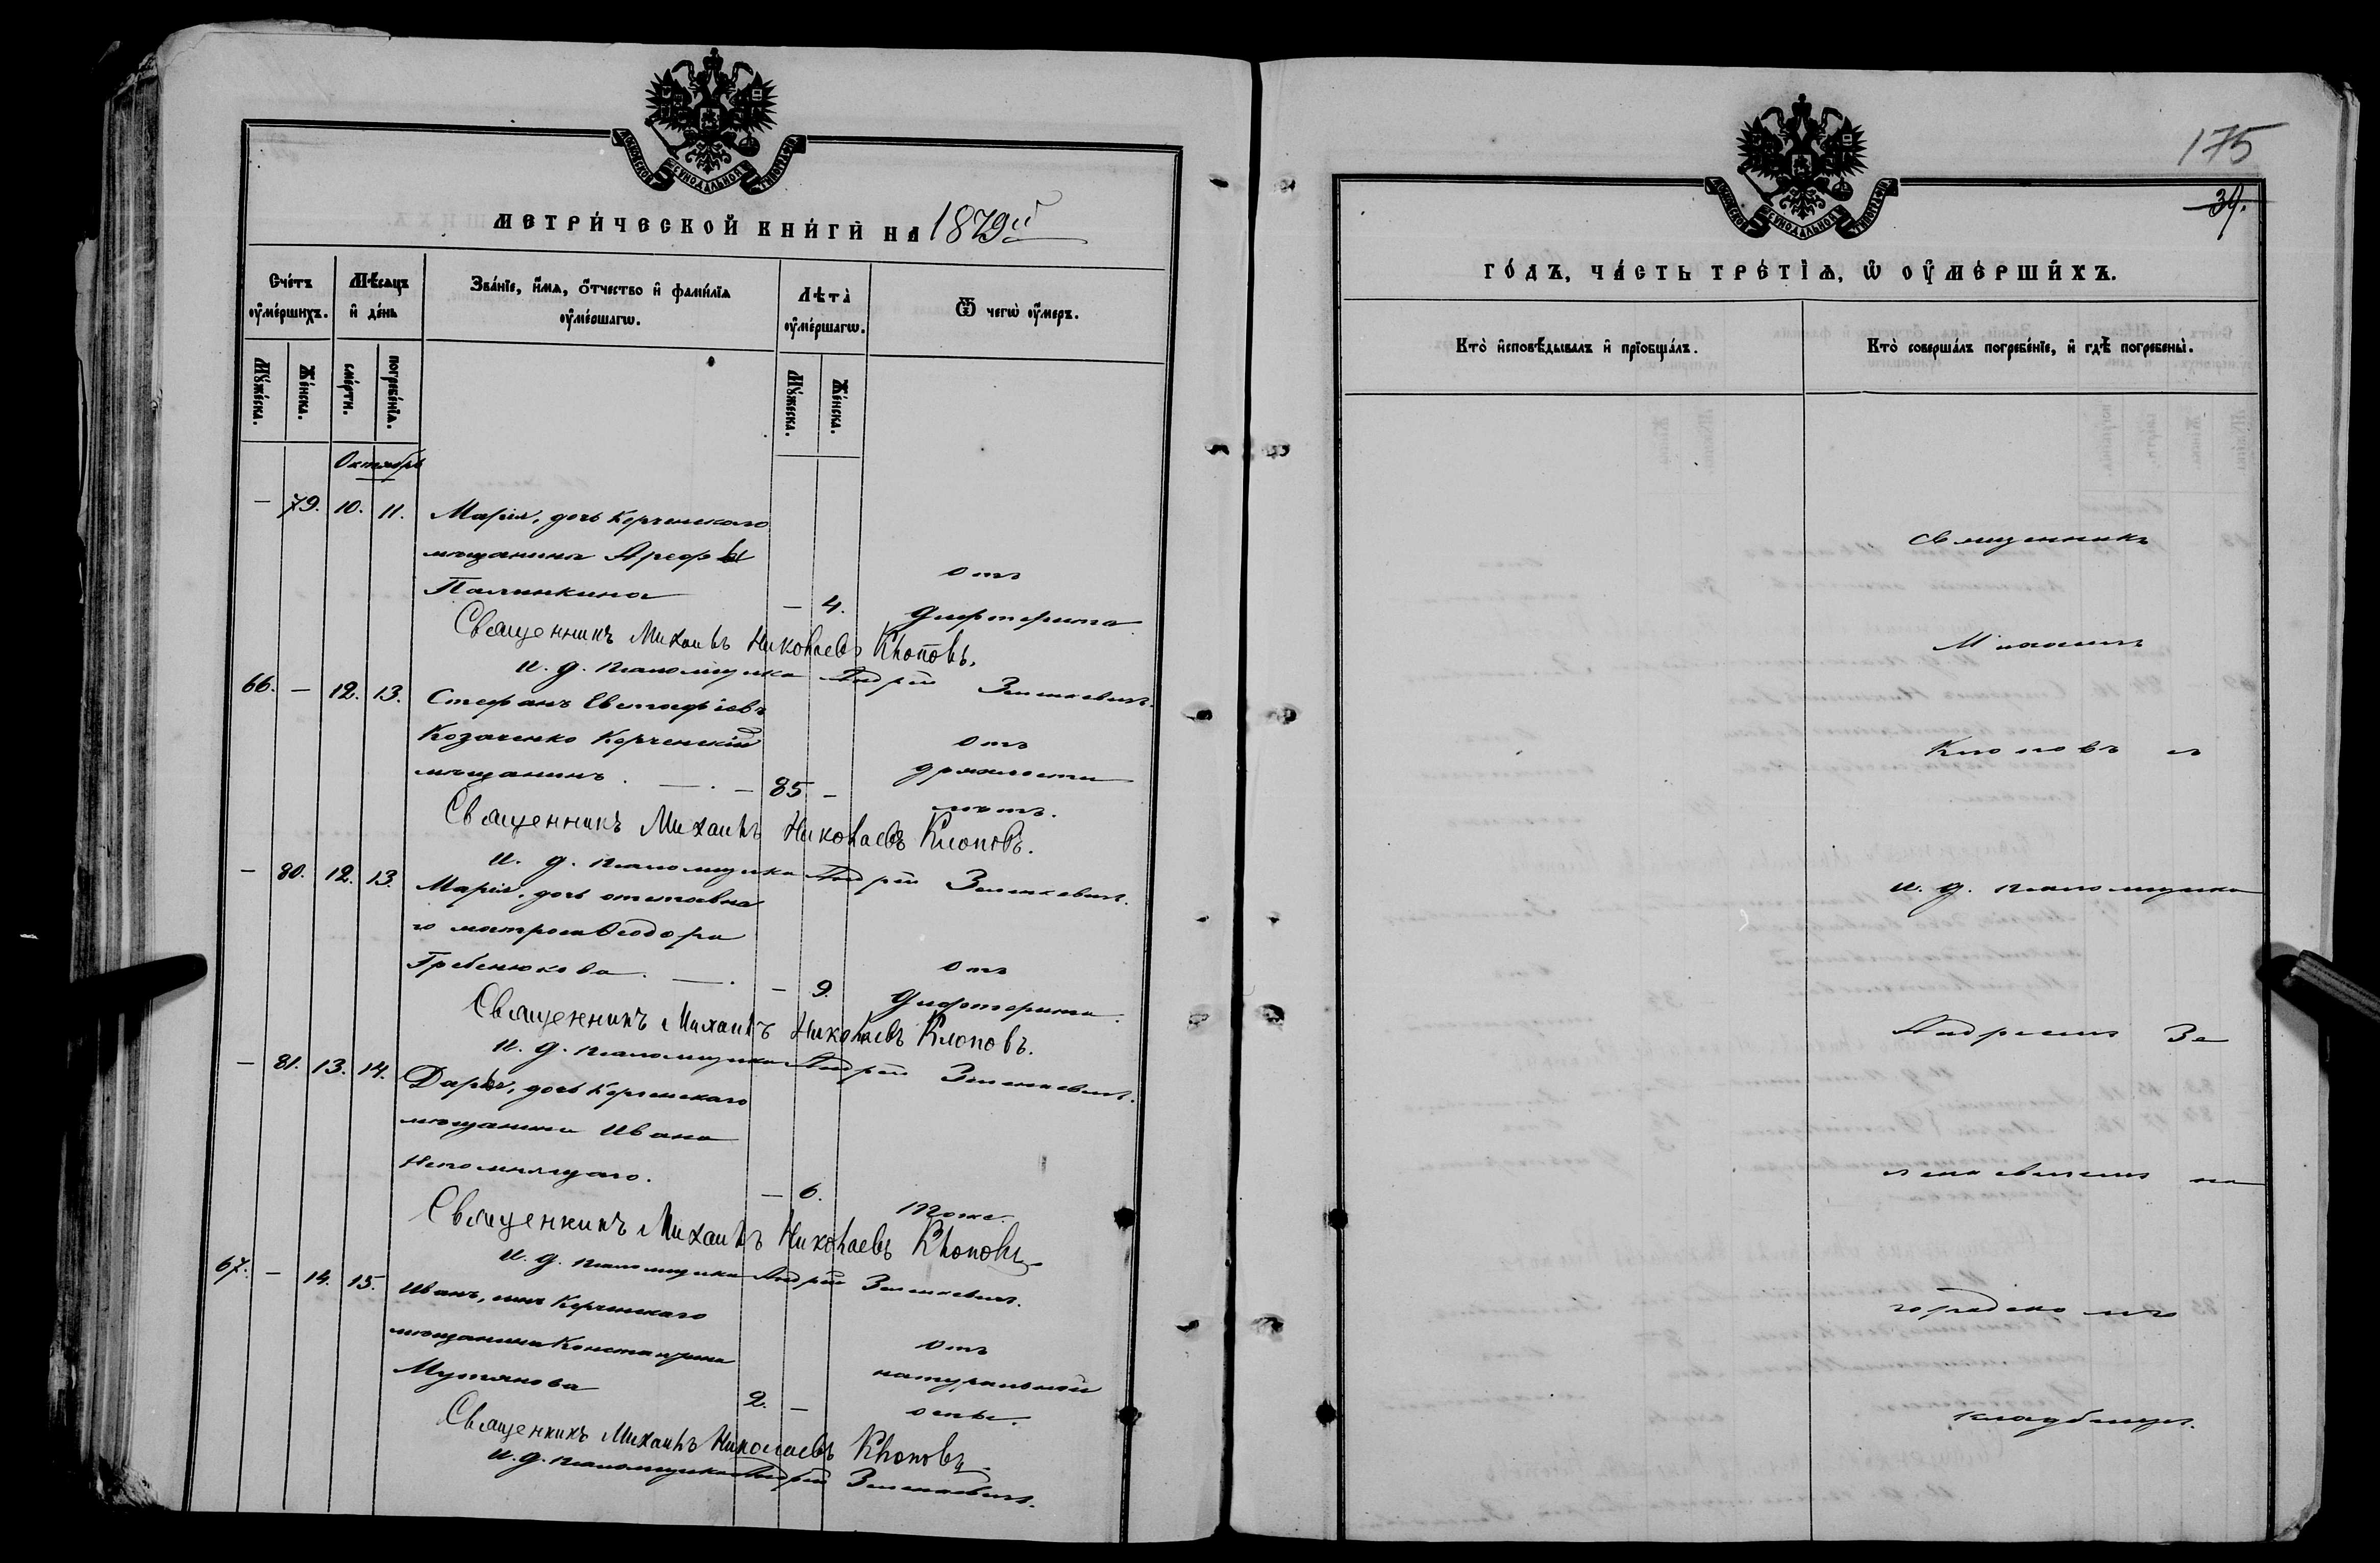 МОСКОВСКОЙ СѴНОДАЛЬНОЙ ТИПОГРАФІИ
МЕТРИ́ЧЕСКОЙ КНИ́ГИ НА 1879й
Сче́тъ ᲂу҆ме́ршихъ.
Мѣ́сѧцъ и҆ де́нь
Зва́нїе, и҆́мѧ, ѻ҆́тчество и҆ фами́лїѧ ᲂу҆ме́ршагѡ.
Лѣта̀ ᲂу҆ме́ршагѡ.
Ѿ чегѡ̀ ᲂу҆́меръ.
Мꙋ́жеска.
Же́нска.
сме́рти.
погребе́нїѧ.
Мꙋ́жеска.
Же́нска.
Октябрь
— 79. 10. 11. Марія, дочь Керченскаго
мѣщанина Арефы
Палинкина — 4. отъ
дифтерита
Священникъ Михаилъ Николаевъ Клоповъ.
и. д. псаломщика Андрей Зеленкевичъ.
66. — 12. 13. Стефанъ Евстафіевъ
Козаченко Керченскій отъ
мѣщанинъ. — . — 85. — дряхлости
лѣтъ.
Священникъ Михаилъ Николаевъ Клоповъ.
и. д. псаломщика Андрей Зеленкевичъ.
— 80. 12. 13. Марія, дочь отставна
го матроса Ѳеодора
Гребенюкова. — . — 9. отъ
дифтерита.
Священникъ Михаилъ Николаевъ Клоповъ.
и. д. псаломщика Андрей Зеленкевичъ.
— 81. 13. 14. Дарья, дочь Керченскаго
мѣщанина Ивана
Непомнящаго. — 6. тоже.
Священникъ Михаилъ Николаевъ Клоповъ
и. д. псаломщика Андрей Зеленкевичъ.
67. — 14. 15. Иванъ, сынъ Керченскаго
мѣщанина Константина отъ
Мутьянова 2. — натуральной
оспы.
Священникъ Михаилъ Николаевъ Клоповъ
и. д. псаломщика Андрей Зеленкевичъ.
175
39.
МОСКОВСКОЙ СѴНОДАЛЬНОЙ ТИПОГРАФІИ
ГО́ДЪ, ЧА́СТЬ ТРЕ́ТЇѦ, Ѡ҆ ОУ҆МЕ́РШИХЪ.
Кто̀ и҆сповѣ́дывалъ и҆ прїобща́лъ.
Кто̀ соверша́лъ погребе́нїе, и҆ гдѣ̀ погребены̀.
Священникъ
Михаилъ
Клоповъ съ
и. д. псаломщика
Андреемъ Зе
ленкевичемъ на
городскомъ
кладбищѣ.